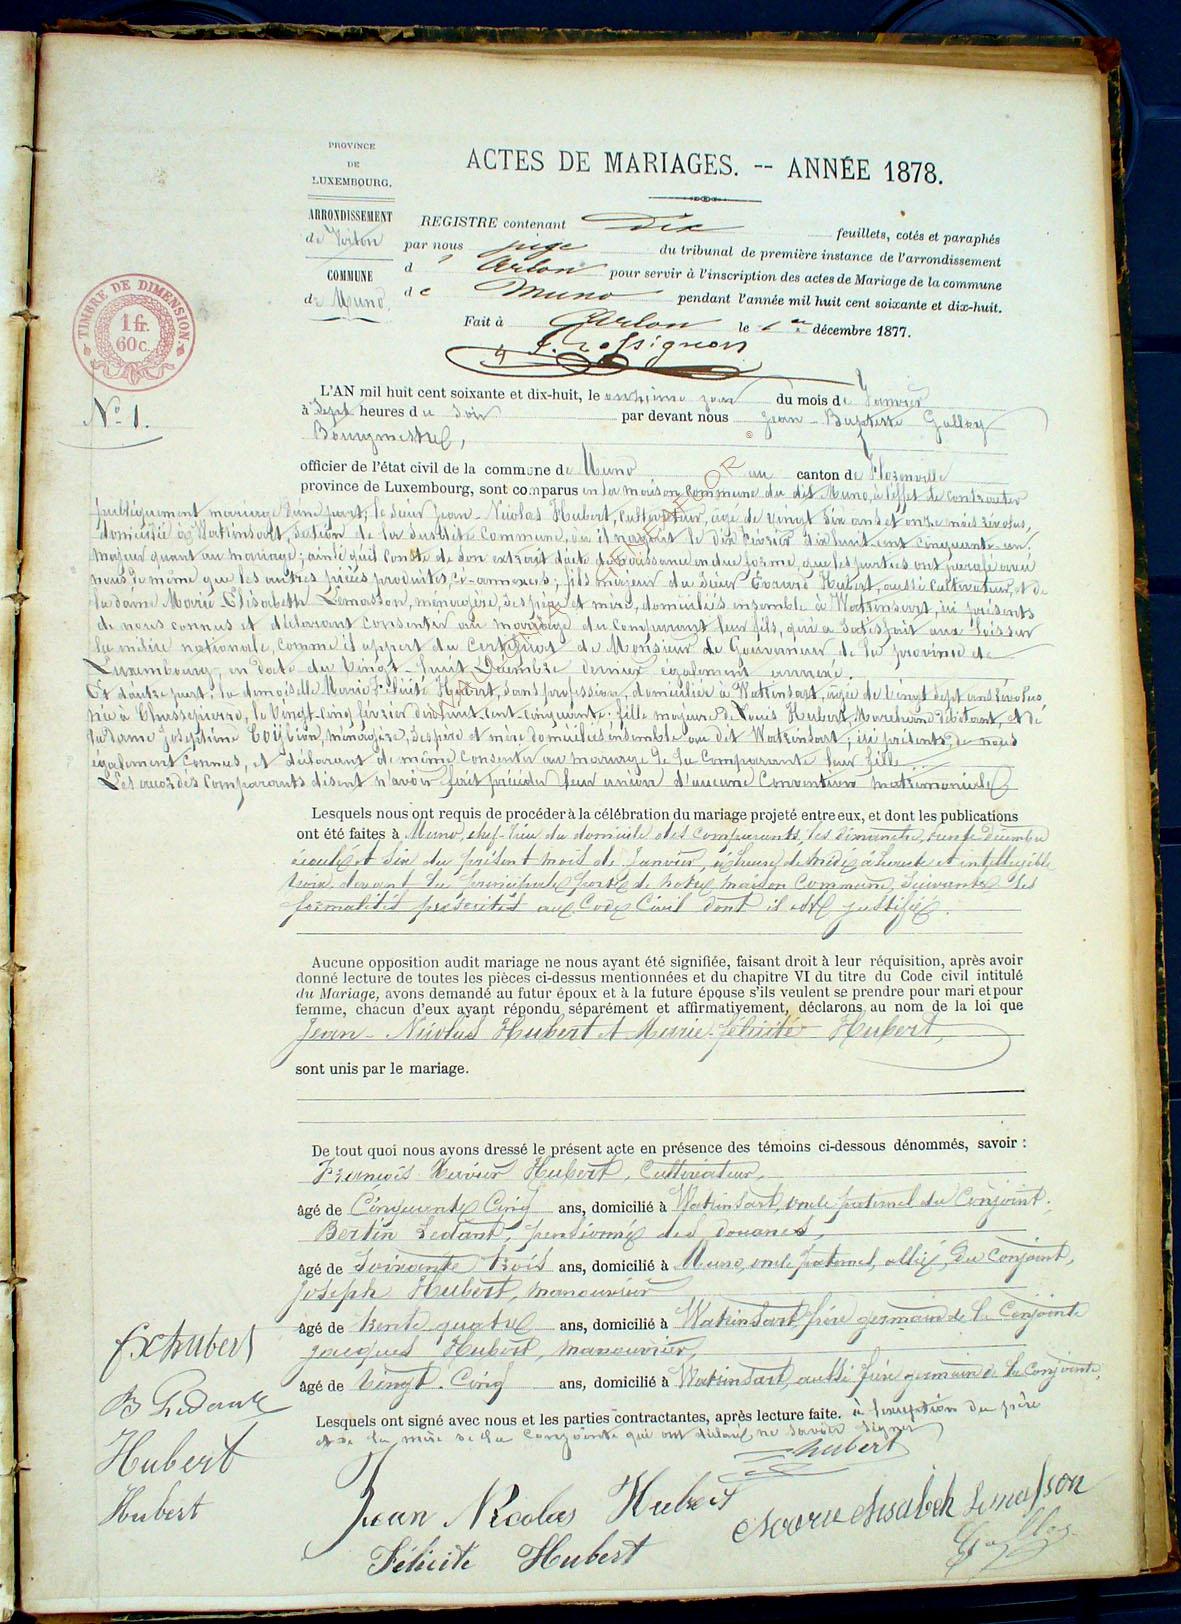 PROVINCE
DE
LUXEMBOURG.
ARRONDISSEMENT
de Virton
COMMUNE
de Muno
TIMBRE DE DIMENSION.
1 fr.
60c.
ACTES DE MARIAGES. -- ANNÉE 1878.
REGISTRE contenant Dix feuillets, cotés et paraphés
par nous juge du tribunal de première instance de l'arrondissement
d' Arlon pour servir à l'inscription des actes de Mariage de la commune
de Muno pendant l'année mil huit cent soixante et dix-huit.
Fait à Arlon le 1er décembre 1877.
Nº 1.
L'AN mil huit cent soixante et dix-huit, le onzième jour du mois de Janvier
à Sept heures du Soir par devant nous Jean-Baptiste Golley
Bourgmestre,
officier de l'état civil de la commune de Muno au canton de Florenville
province de Luxembourg, sont comparus en la maison commune du dit Muno, à l'effet de contracter
publiquement mariage d'une part; le sieur Jean-Nicolas Hubert, Cultivateur, âgé de vingt six ans et onze mois révolus,
domicilié à Watrinsart, section de la susdite commune, où il naquit le dix février dix huit cent cinquante-un;
majeur quant au mariage; ainsi qu'il conste de son extrait d'acte de naissance en due forme, que les parties ont parafé avec
nous de même que les autres pièces produites, ci-annexées; fils majeur du sieur Evrard Hubert, aussi Cultivateur, et de
la dame Marie Elisabeth Lemasson, ménagère, ses père et mère, domiciliés ensemble à Watrinsart, ici présents
de nous connus et déclarant consentir au mariage du comparant leur fils, qui a satisfait aux Lois sur
la milice nationale, comme il appert du Certificat de Monsieur le Gouverneur de la province de
Luxembourg, en date du Vingt-huit Décembre dernier également annexé.
Et d'autre part: la demoiselle Marie Félicité Hubert, sans profession, domiciliée à Watrinsart, âgée de Vingt sept ans révolus
née à Chassepierre, le Vingt-cinq février dix huit-cent-cinquante: fille majeure de Louis Hubert, Marchand débitant, et de
la dame Joséphine, ménagère, ses père et mère domiciliés ensemble au dit Watrinsart; ici présents, de nous
également connus, et déclarant de même consentir au mariage de la Comparante leur fille.
Les susdits Comparants disent n'avoir fait précéder leur union d'aucune Convention matrimoniale
Lesquels nous ont requis de procéder à la célébration du mariage projeté entre eux, et dont les publications
ont été faites à Muno, chef-lieu du domicile des comparants, les dimanche, trente Décembre
écoulé et Six du présent mois de Janvier, à l'heure de midi à haute et intelligible
voix, devant la principale porte de notre maison Commune, Suivant les
formalités prescrites au Code Civil dont il est justifié.
Aucune opposition audit mariage ne nous ayant été signifiée, faisant droit à leur réquisition, après avoir
donné lecture de toutes les pièces ci-dessus mentionnées et du chapitre VI du titre du Code civil intitulé
du Mariage, avons demandé au futur époux et à la future épouse s'ils veulent se prendre pour mari et pour
femme, chacun d'eux ayant répondu séparément et affirmativement, déclarons au nom de la loi que
Jean-Nicolas Hubert et Marie-félicité Hubert,
sont unis par le mariage.
De tout quoi nous avons dressé le présent acte en présence des témoins ci-dessous dénommés, savoir :
François Xavier Hubert, Cultivateur,
âgé de Cinquante Cinq ans, domicilié à Watrinsart, oncle paternel du Conjoint;
Bertin Ledant, pensionné des douanes,
âgé de Soixante trois ans, domicilié à Muno, oncle paternel, allié, du Conjoint,
Joseph Hubert, manouvrier
âgé de trente quatre ans, domicilié à Watrinsart, frère germain de la Conjointe
Jacques Hubert, manouvrier,
âgé de Vingt-Cinq ans, domicilié à Watrinsart, aussi frère germain de la Conjointe,
Lesquels ont signé avec nous et les parties contractantes, après lecture faite. à l'exception du père
et de la mère de la Conjointe qui ont déclaré ne savoir signer
fx hubert
B Ledant
Hubert
Hubert
hubert
Jean Nicolas Hubert
Marie Elisabeth Lemasson
Félicité Hubert